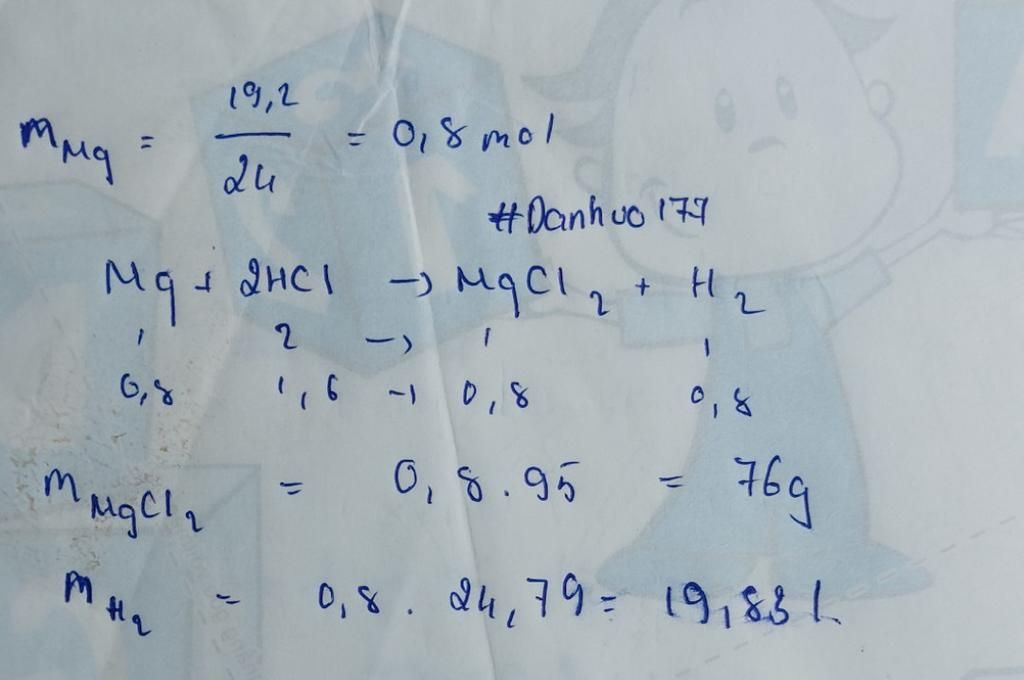 m Mg = 19,2 / 24 = 0,8 mol
#Danhvo177
Mg + 2HCl → MgCl2 + H2
1 2 → 1 1
0,8 1,6 → 0,8 0,8
m MgCl2 = 0,8 . 95 = 76g
m H2 = 0,8 . 24,79 = 19,83 l